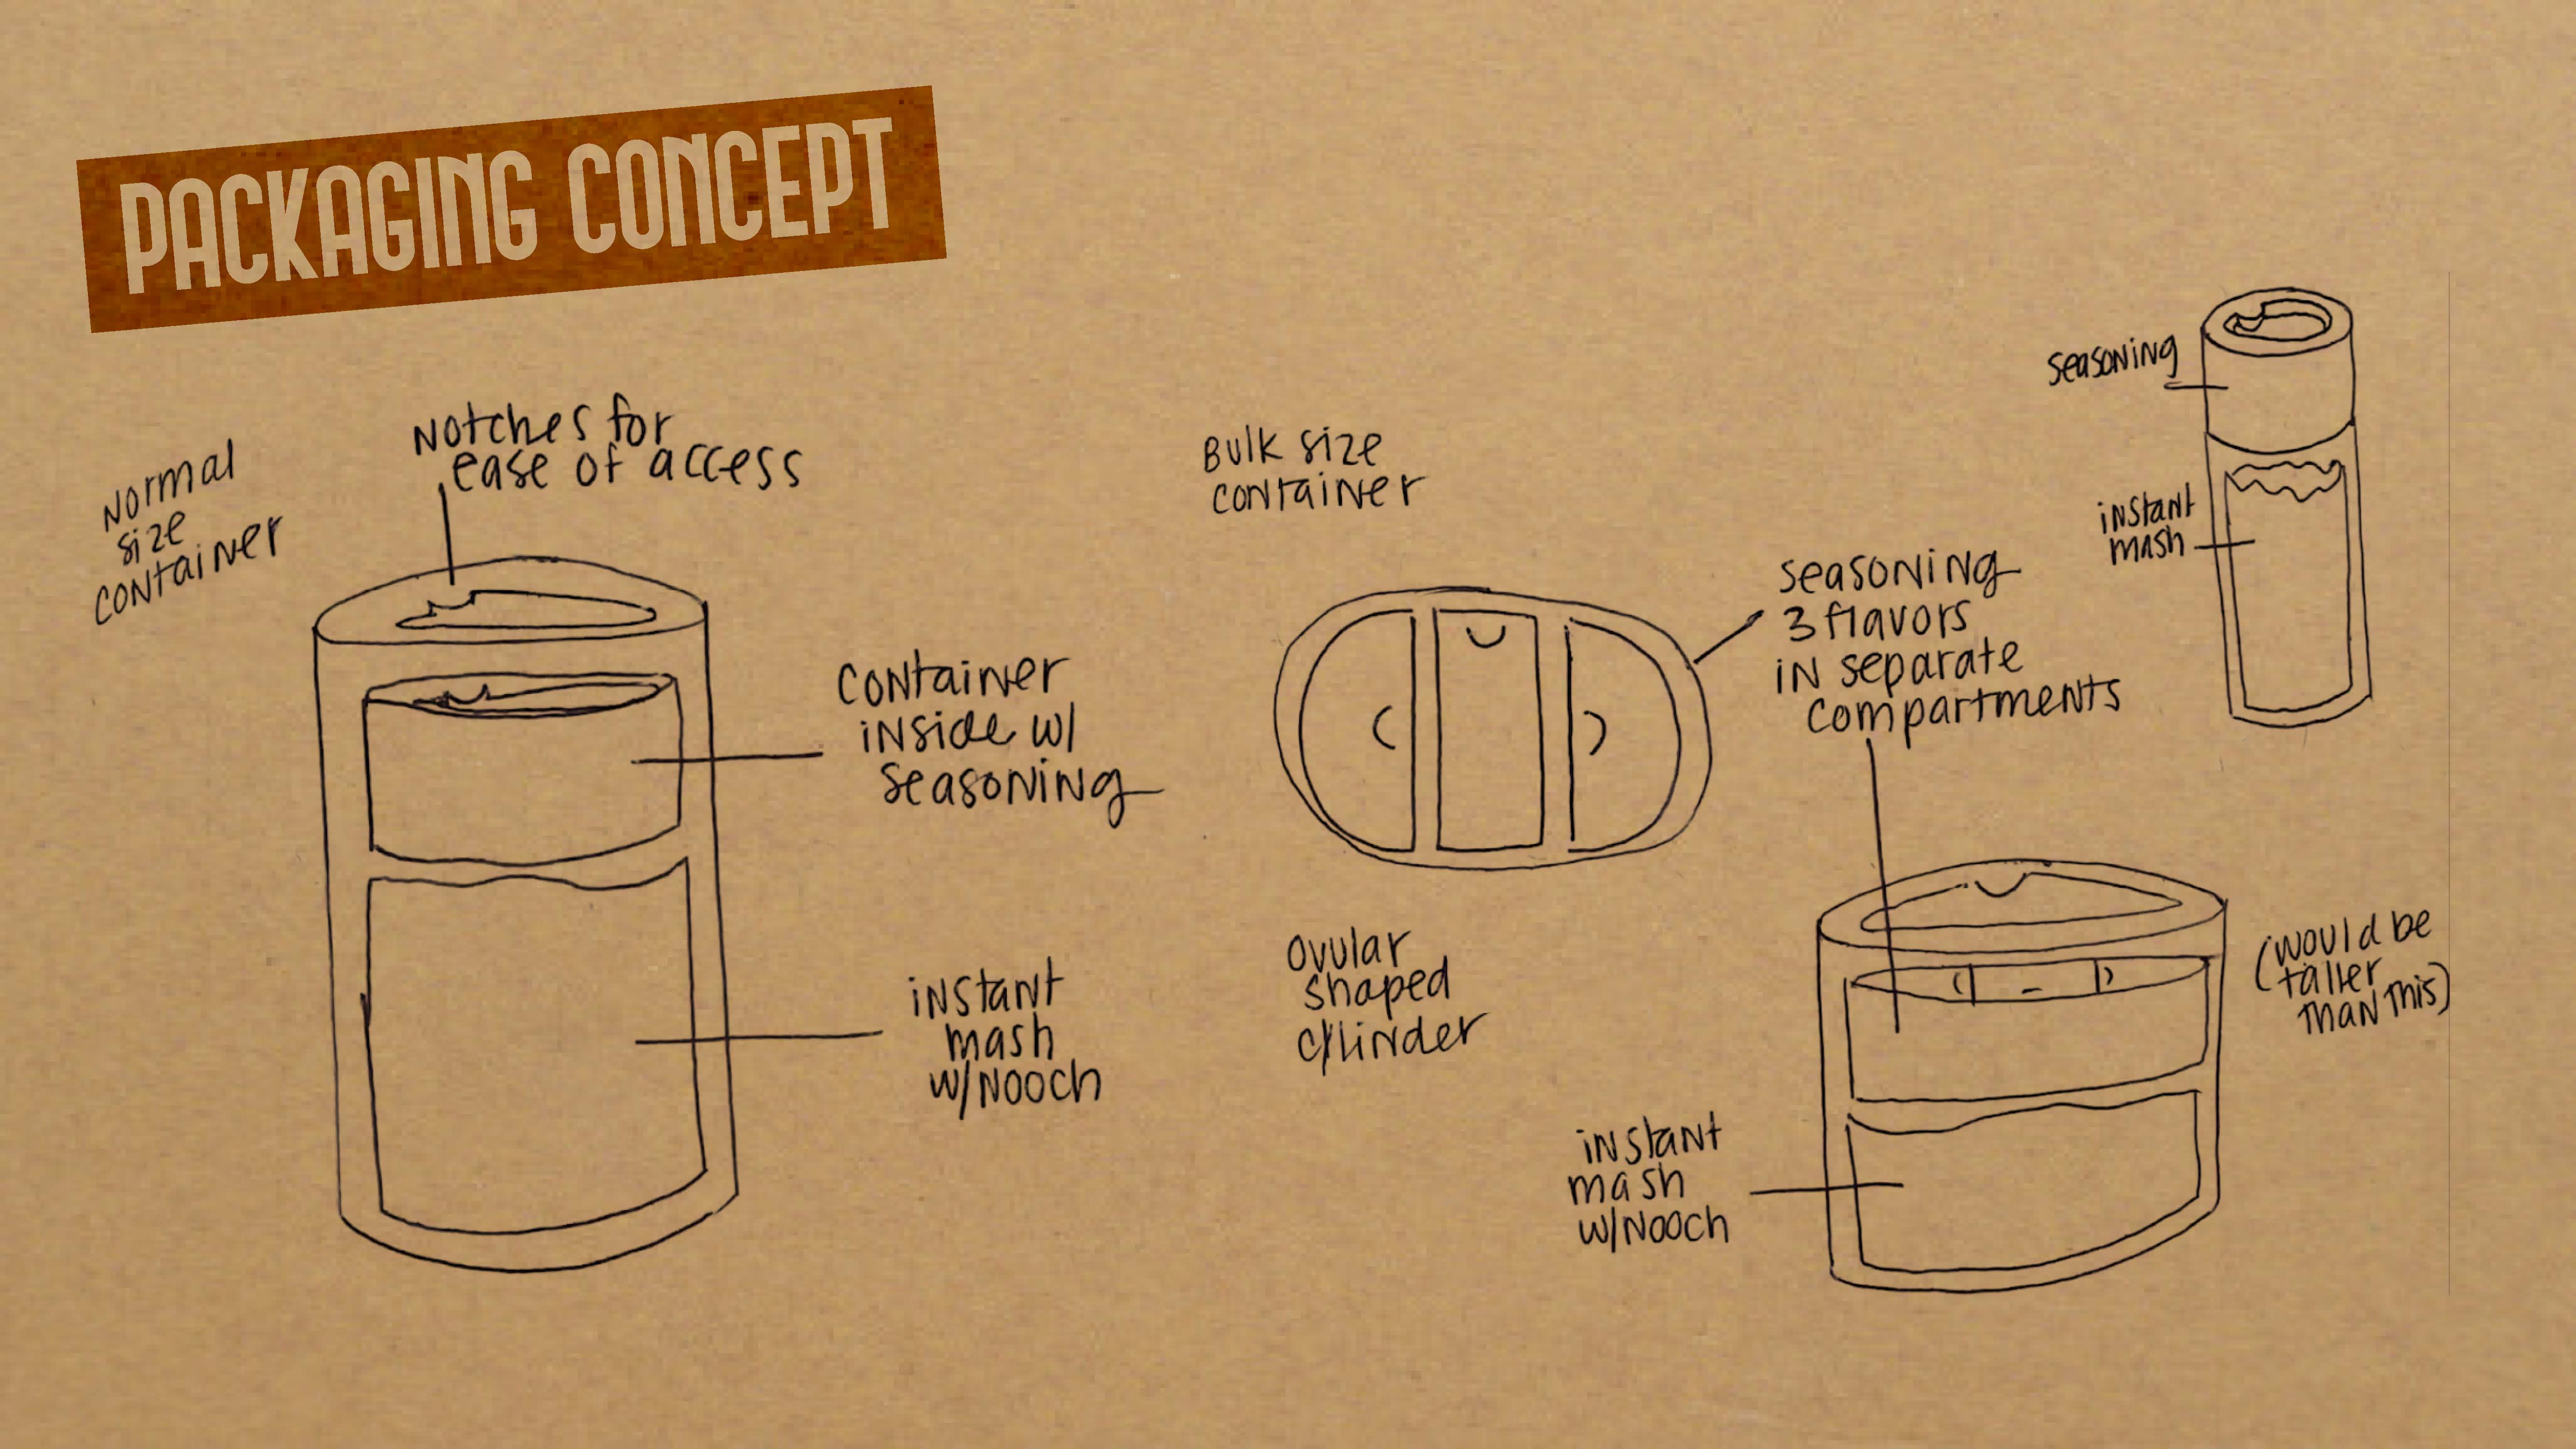 PACKAGING CONCEPT
Normal
size
container
Notches for
ease of access
container
inside w/
seasoning
instant
mash
w/Nooch
Bulk size
container
seasoning
3 flavors
in separate
compartments
ovular
shaped
cylinder
instant
mash
w/Nooch
(would be
taller
than this)
seasoning
instant
mash